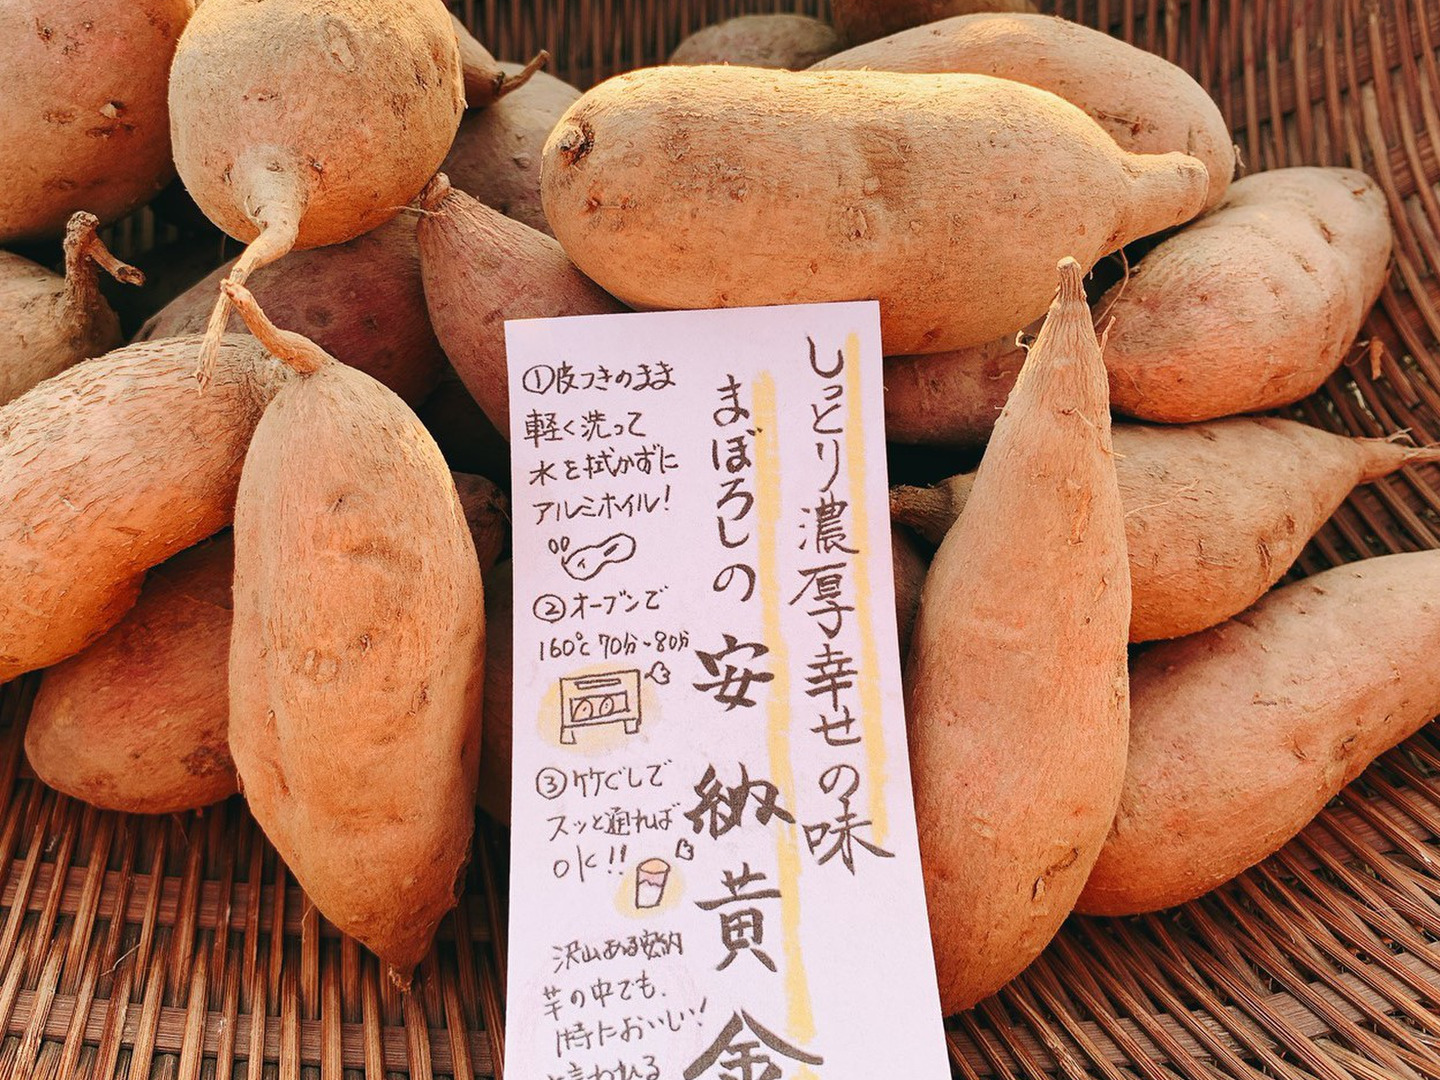 しっとり濃厚幸せの味
まぼろしの安納黄金
①皮つきのまま
軽く洗って
水を拭かずに
アルミホイル!
②オーブンで
160℃ 70分~80分
③竹ぐしで
スッと通れば
OK!!
沢山ある安納
芋の中でも、
特においしい!
と言われる